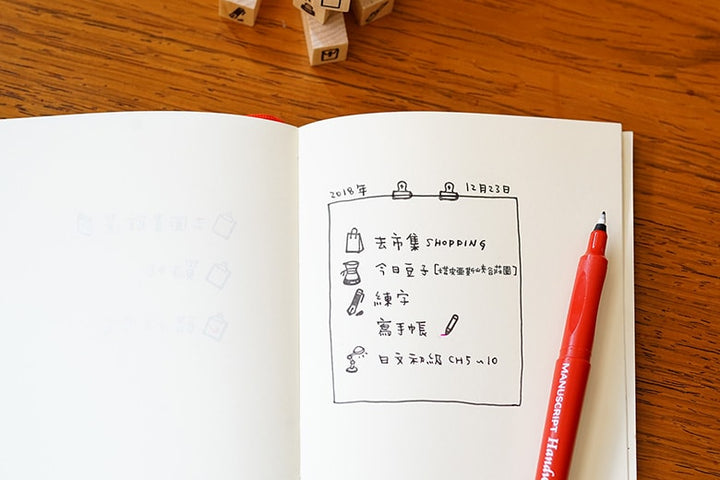 2018年 12月23日
去市集 SHOPPING
今日豆子 [
練字
寫手帳
日文初級 CH5~10
MANUSCRIPT Handw